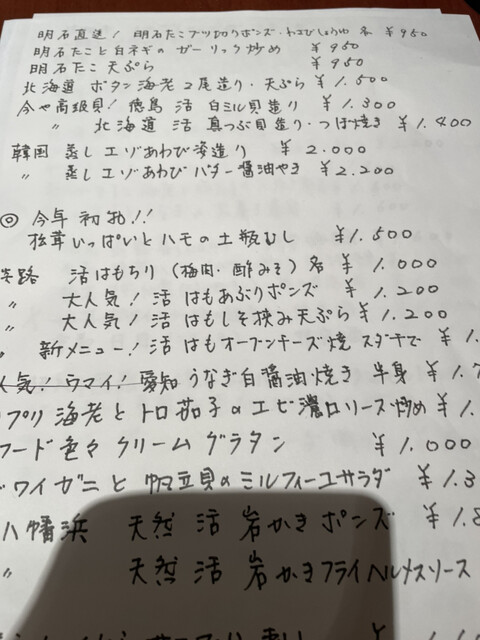 明石直送! 明石たこブツ切りポンズ・わさびしょうゆ 各 ¥950
明石たこと白ネギのガーリック炒め ¥950
明石たこ 天ぷら ¥950
北海道 ボタン海老2尾造り・天ぷら ¥1.500
今や高級貝! 徳島 活 白ミル貝造り ¥1.300
〃 北海道 活 真つぶ貝造り・つぼ焼き ¥1.400
韓国 蒸しエゾあわび姿造り ¥2.000
〃 蒸しエゾあわびバター醤油やき ¥2.200
◎今年初物!!
松茸いっぱいとハモの土瓶むし ¥1.500
淡路 活はもちり(梅肉・酢みそ)各 ¥1.000
〃 大人気!活はもあぶりポンズ ¥1.200
〃 大人気!活はもしそ挟み天ぷら ¥1.200
〃 新メニュー!活はもオーブンチーズ焼 スダチで ¥1.
人気!ウマイ!愛知うなぎ白醤油焼き 半身 ¥1.7
プリ海老とトロ茄子のエビ濃口ソース炒め ¥1.
フード色々クリームグラタン ¥1.000
ズワイガニと帆立貝のミルフィーユサラダ ¥1.3
八幡浜 天然 活 岩かきポンズ ¥1.8
〃 天然 活 岩かきフライハルメスソース